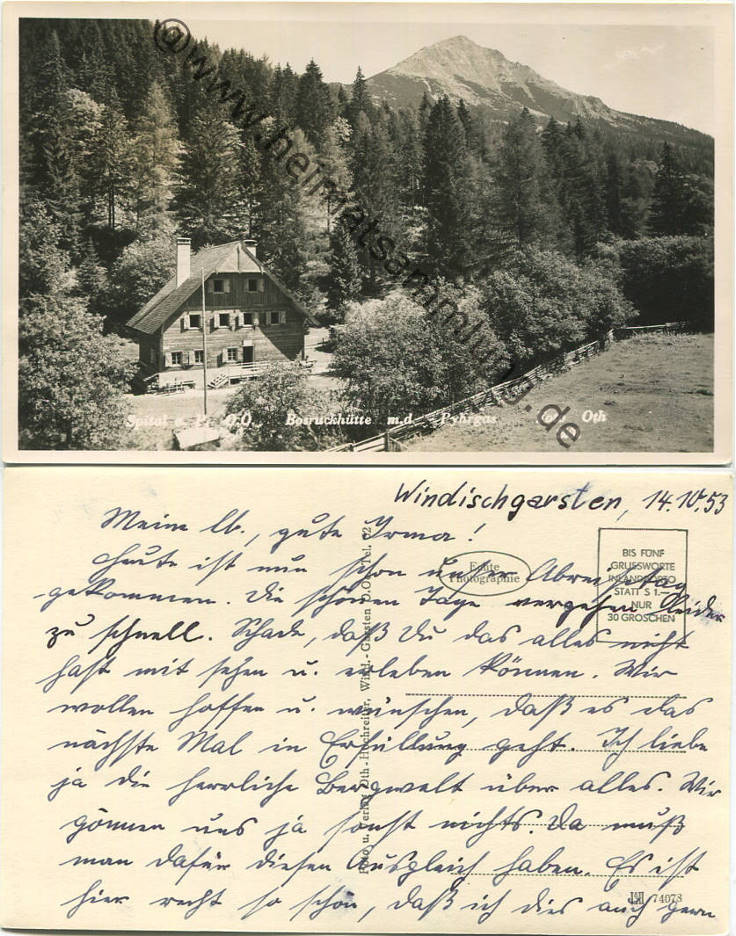 @www.heimatsammlung.de
Spital a. P. O.Ö. Bosruckhütte m.d. Pyhrgas Oth
Windischgarsten, 14.10.53
Meine lb., gute Irma!
Heute ist nun schon unser Abreisetag
gekommen. Die schönen Tage vergehen leider
zu schnell. Schade, daß Du das alles nicht
hast mit sehen u. erleben können. Wir
wollen hoffen u. wünschen, daß es das
nächste Mal in Erfüllung geht. Ich liebe
ja die herrliche Bergwelt über alles. Wir
gönnen uns ja sonst nichts. Da muß
man dafür diesen Ausgleich haben. Es ist
hier recht so schön, daß ich dies auch gern
Echte
Photographie
BIS FÜNF
GRUSSWORTE
INLANDPORTO
STATT S 1.—
NUR
30 GROSCHEN
Foto u. Verlag Oth-Hochreiter, Wind.-Garsten O.Ö. Tel. 62
74073